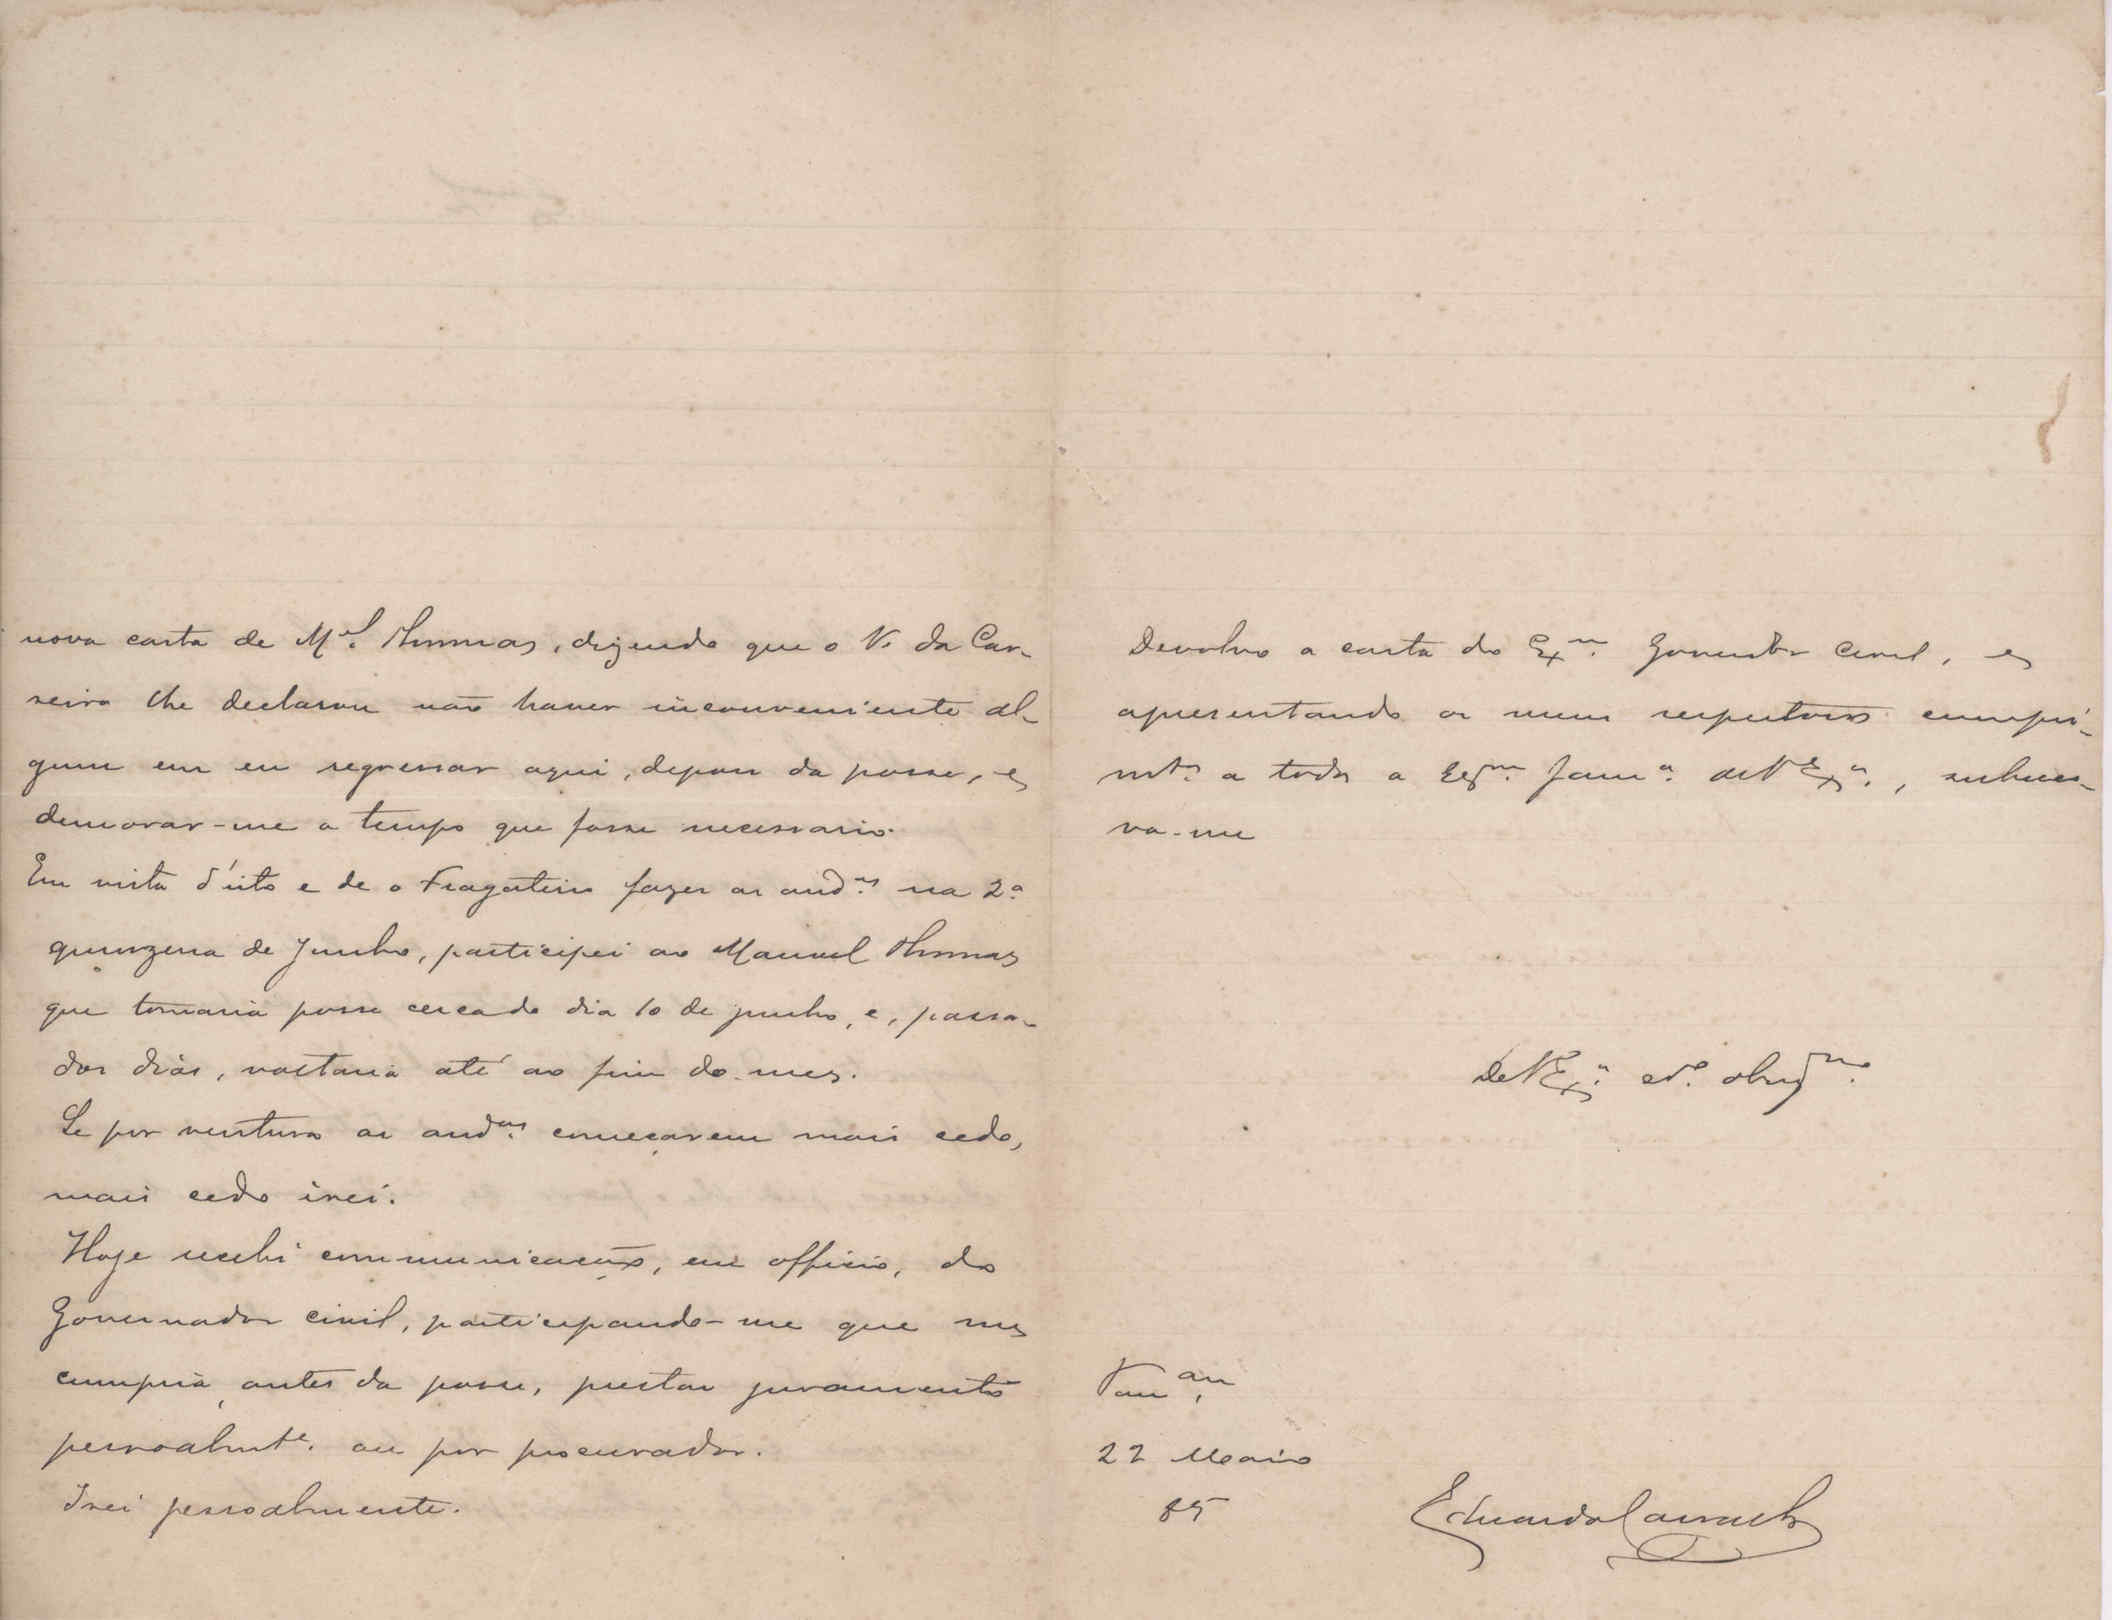 nova carta de M.el Thomas, dizendo que o V. da Car-
reira lhe declarou não haver inconveniente al-
gum em eu regressar aqui, depois da posse, e
demorar-me o tempo que fosse necessario.
Em vista d'isto e de o Fragateiro fazer as aud.as na 2.ª
quinzena de Junho, participei ao Manuel Thomas
que tomaria posse cerca do dia 10 de junho, e, passa-
dos dias, voltaria até ao fim do mez.
Se por ventura as aud.as começarem mais cedo,
mais cedo irei.
Hoje recebi communicação, em officio, do
Governador civil, participando-me que me
cumpria, antes da posse, prestar juramento
pessoalmt.e ou por procurador.
Irei pessoalmente.
Devolvo a carta do Ex.mo Governador Civil, e
apresentando os meus respeitosos cumpri-
mt.os a toda a Ex.ma Fam.a de V. Ex.a, subscre-
vo-me
De V. Ex.a cr.o obrig.mo
22 Maio
85
Eduardo